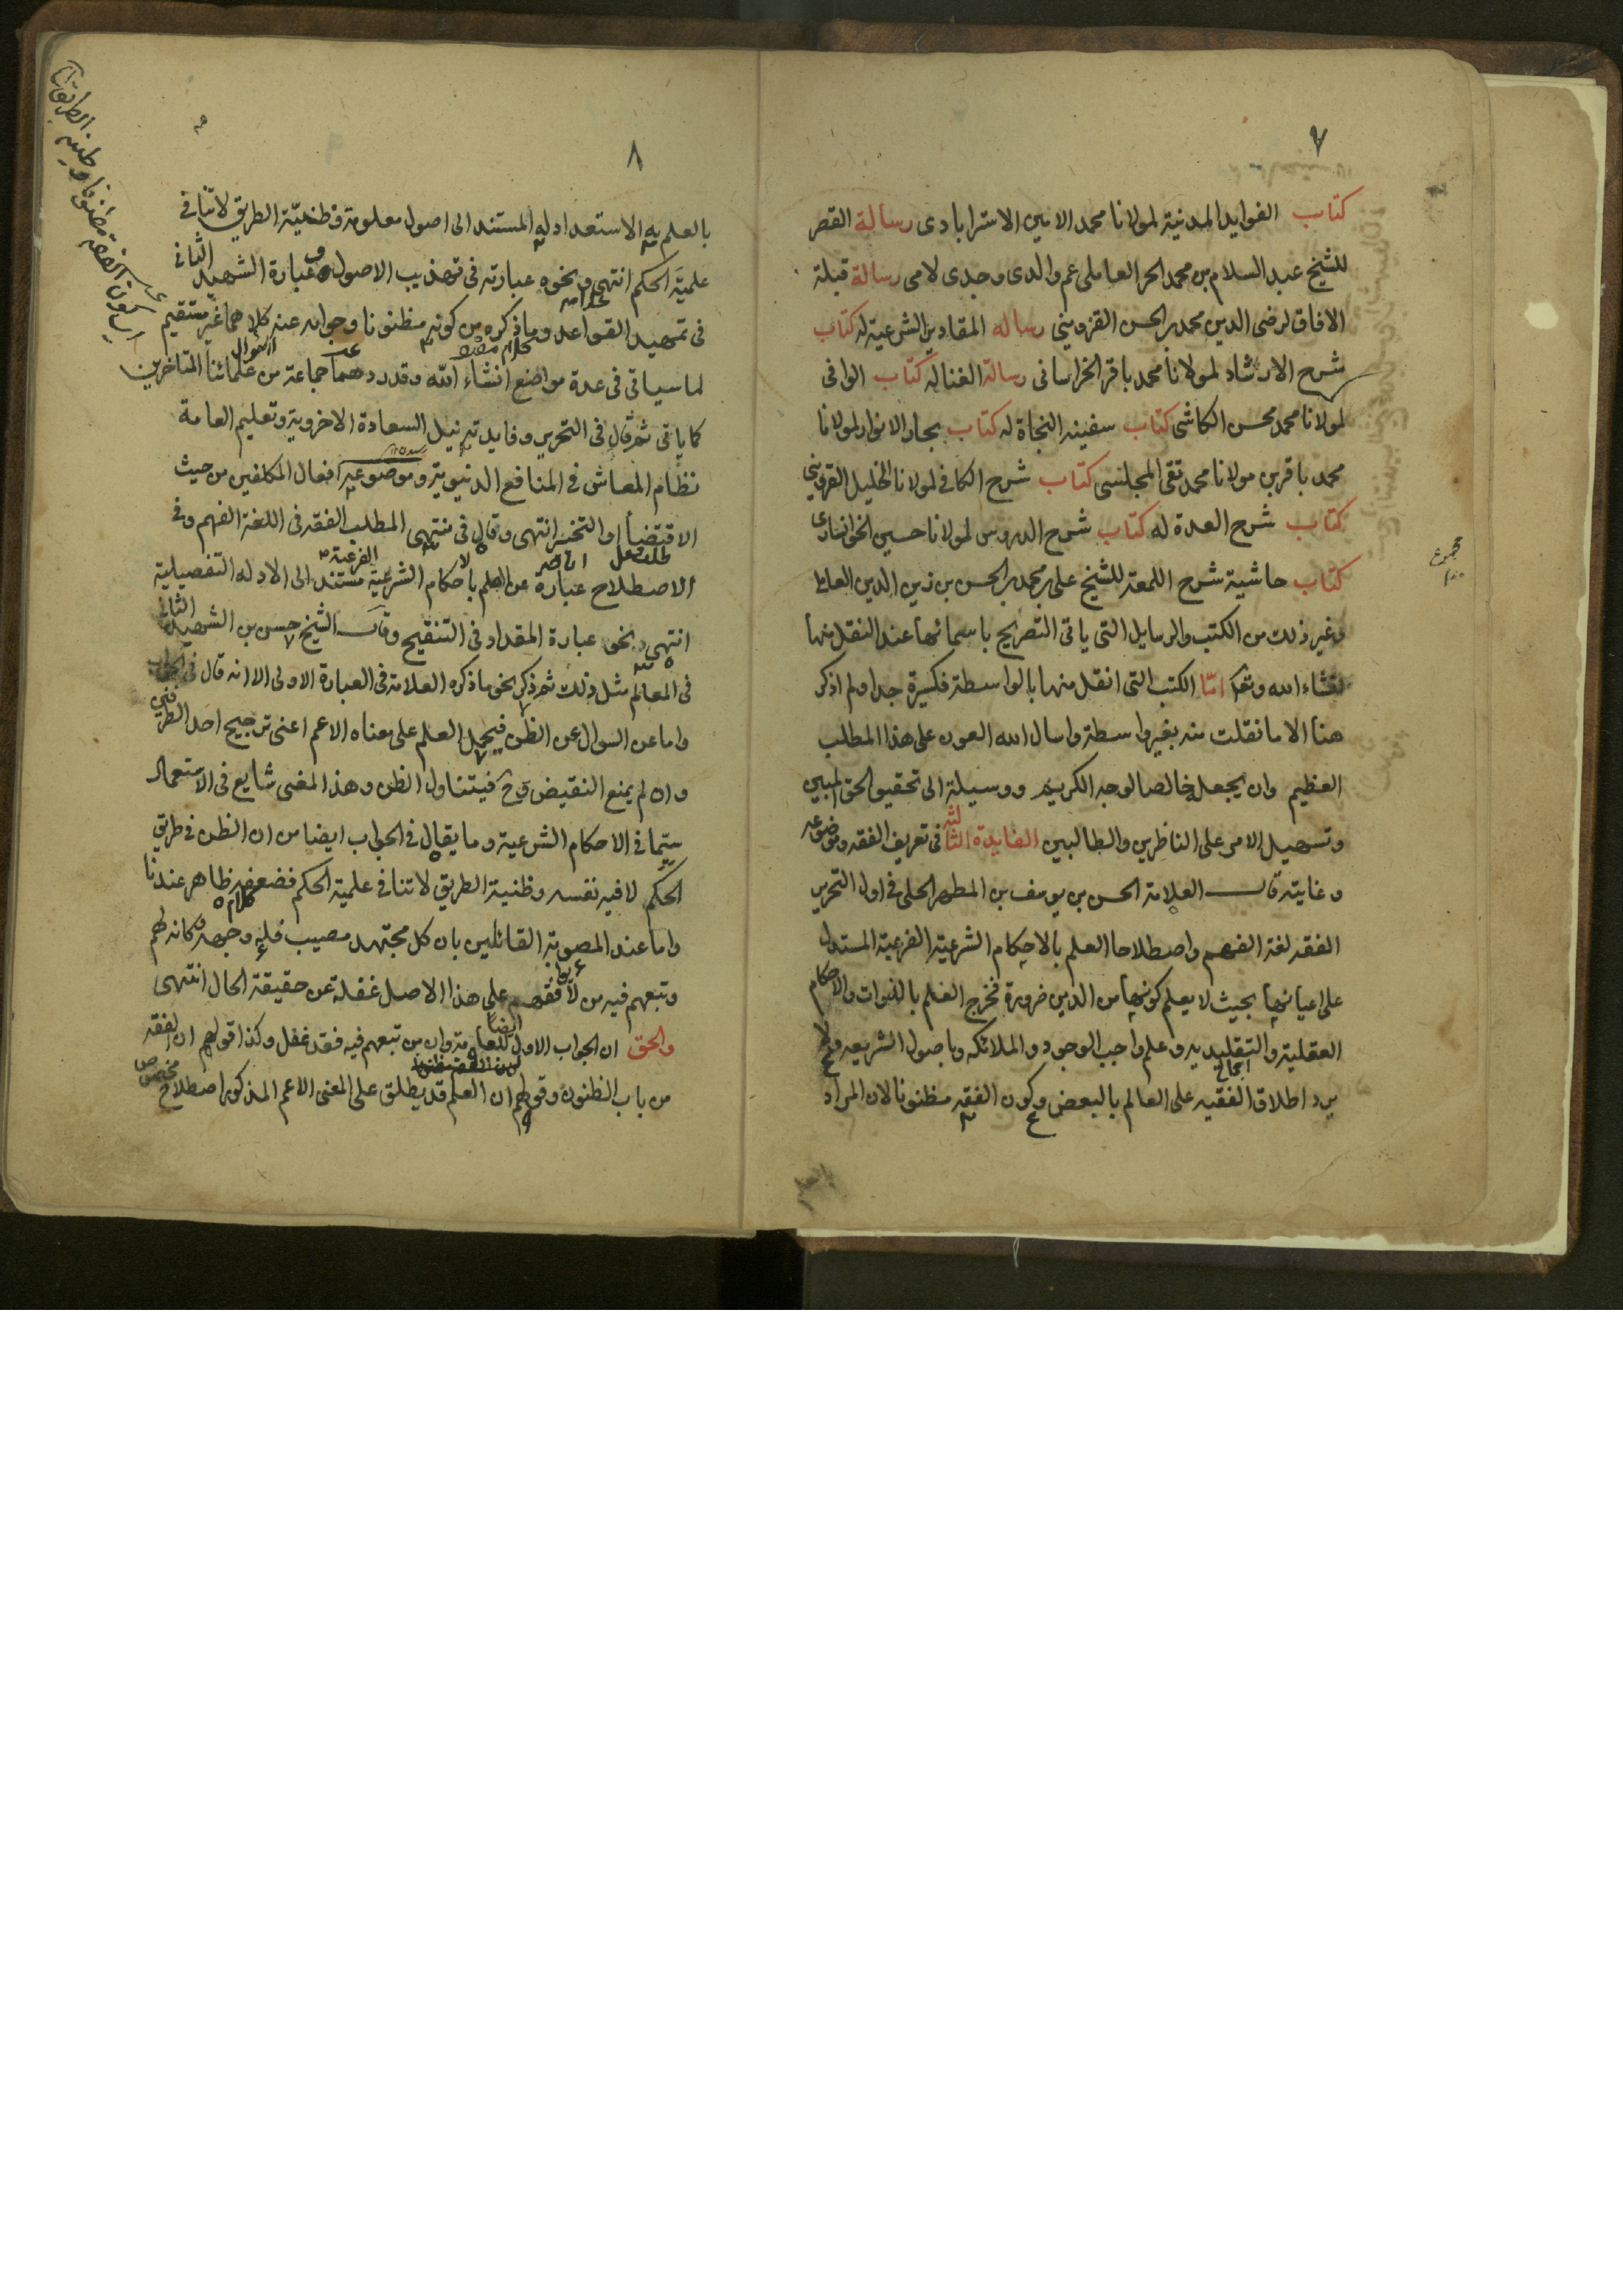 ٧
كتاب الفوايد المدنية لمولانا محمد الامين الاسترابادى رسالة القصر
للشيخ عبد السلام بن محمد الحر العاملى عم والدى وجدى لامى رسالة قبلة
الافاق لرضى الدين محمد بن الحسن القزوينى رساله المقادير الشرعية له كتاب
شرح الارشاد لمولانا محمد باقر الخراسانى رسالة الغنا له كتاب الوافى
لمولانا محمد محسن الكاشى كتاب سفينه النجاة له كتاب بحار الانوار لمولانا
محمد باقر بن مولانا محمد تقى المجلسى كتاب شرح الكافى لمولانا الخليل القزوينى
كتاب شرح العدة له كتاب شرح الدروس لمولانا حسين الخوانسارى
كتاب حاشية شرح اللمعة للشيخ على بن محمد بن الحسن بن زين الدين العاملى
وغير ذلك من الكتب والرسايل التى ياتى التصريح باسمائها عند النقل منها
انشاء الله وتعالى امّا الكتب التى انقل منها بالواسطة فكثيرة جدا ولم اذكر
هنا الا ما نقلت منه بغير واسطة واسال الله العون على هذا المطلب
العظيم وان يجعله خالصا لوجهه الكريم ووسيلة الى تحقيق الحق المبين
وتسهيل الامر على الناظرين والطالبين الفايدة الثالثه فى تعريف الفقه وموضوعه
وغايته قال العلامة الحسن بن يوسف بن المطهر الحلى فى اول التحرير
الفقه لغة الفهم واصطلاحا العلم بالاحكام الشرعية الفرعية المستدل
على اعيانها بحيث لا يعلم كونها من الدين ضرورة فخرج العلم بالذوات والاحكام
العقلية والتقليديه وعلم واجب الوجود والملائكه وباصول الشريعه ولا
يرد اطلاق الفقيه على العالم بالبعض وكون الفقه مظنونا لان المراد
٨
بالعلم به الاستعداد له المستند الى اصول معلومة وظنيّة الطريق لا تنافى
علميّة الحكم انتهى ونحوه عبارته فى تهذيب الاصول وعبارة الشهيد الثانى
فى تمهيد القواعد وما ذكره من كونه مظنونا وجوابه عنه كلاهما غير مستقيم
لما سياتى فى عدة مواضع انشاء الله وقد ردهما جماعة من علمائنا المتاخرين
كما ياتى ثم قال فى التحرير وفايدته نيل السعادة الاخروية وتعليم العامة
نظام المعاش فى المنافع الدنيوية وموضوعه افعال المكلفين من حيث
الاقتضاء او التخيير انتهى وقال فى منتهى المطلب الفقه فى اللغة الفهم وفى
الاصطلاح عبارة عن العلم بالاحكام الشرعية الفرعية مستند الى الادله التفصيلية
انتهى ونحو عبارة المقداد فى التنقيح وقال الشيخ حسن بن الشهيد الثانى
فى المعالم مثل ذلك ثم ذكر نحو ما ذكره العلامة فى العبارة الاولى الا انه قال فى الجواب
واما عن السوال عن الظن فيحمل العلم على معناه الاعم اعنى ترجيح احد الطرفين
وان لم يمنع النقيض وح فيتناول الظن وهذا المعنى شايع فى الاستعمال
سيّما فى الاحكام الشرعية وما يقال فى الجواب ايضا من ان الظن فى طريق
الحكم لا فيه نفسه وظنية الطريق لا تنافى علمية الحكم فضعفه ظاهر عندنا
واما عند المصوبة القائلين بان كل مجتهد مصيب فله وجه وكانه لهم
وتبعهم فيه من لا وافقهم على هذا الاصل غفلة عن حقيقة الحال انتهى
والحق ان الجواب الاول ايضا للعامة وان من تبعهم فيه فقد غفل وكذا قولهم ان الفقه
من باب الظنون وقولهم ان العلم قد يطلق على المعنى الاعم المذكور اصطلاح